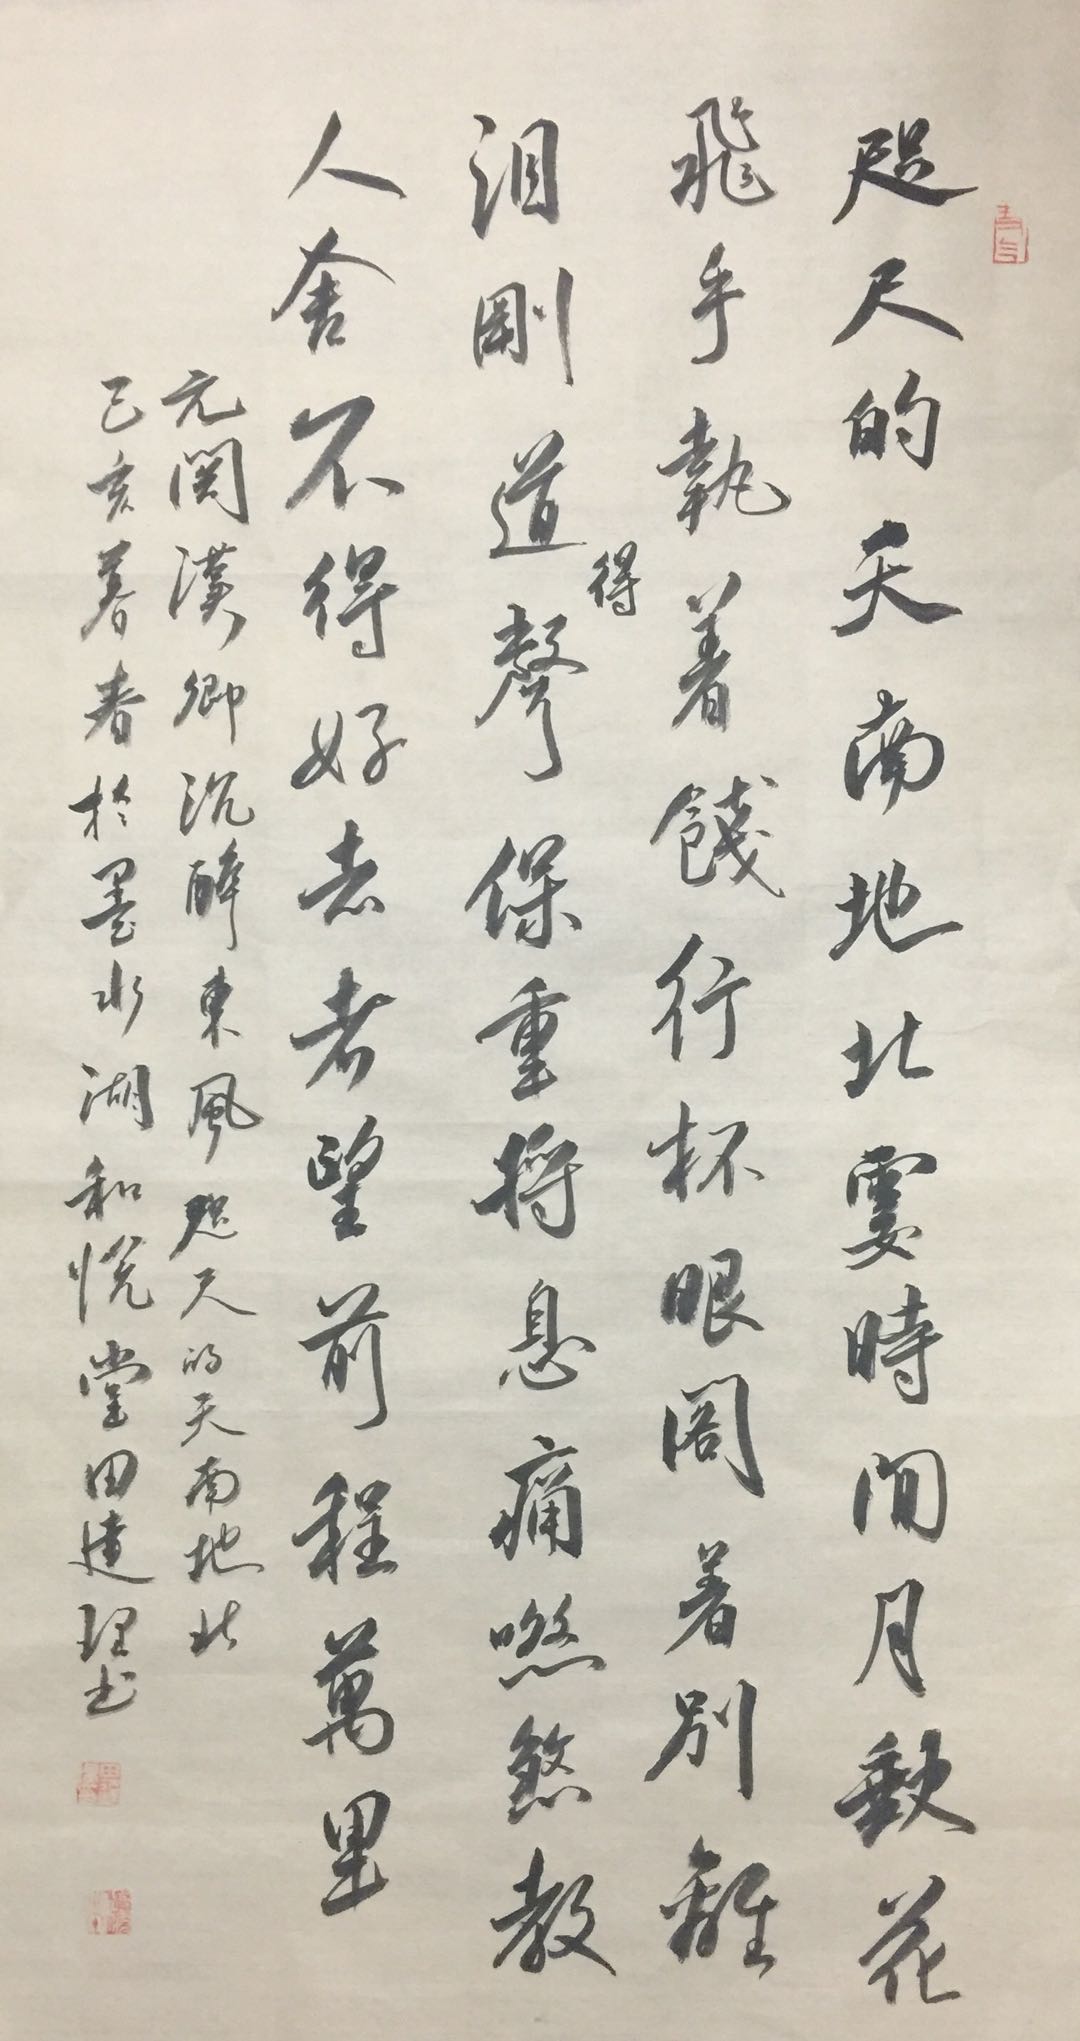 咫尺的天南地北霎時間月缺花
飛手執着餞行杯眼閣着別離
淚剛道聲
得
保重將息痛煞煞教
人舍不得好去者望前程萬里
元関漢卿沉醉東風咫尺的天南地北
己亥暮春於墨水湖和悦堂田建理书